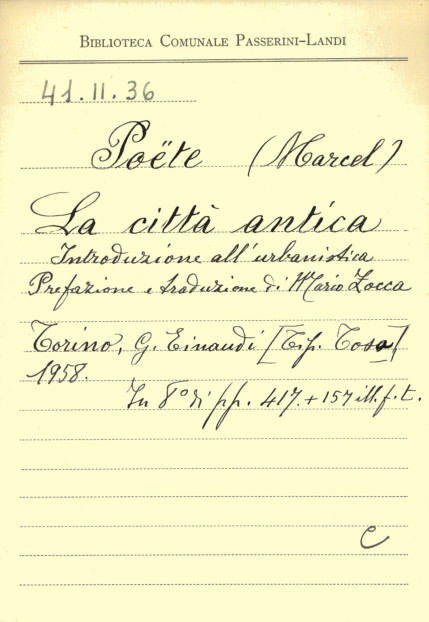 BIBLIOTECA COMUNALE PASSERINI-LANDI
41.II.36
Poëte (Marcel)
La città antica
Introduzione all'urbanistica
Prefazione e traduzione di Mario Zocca
Torino, G. Einaudi [Tip. Toso]
1958.
In 8° di pp. 417.+157 ill. f. t.
C